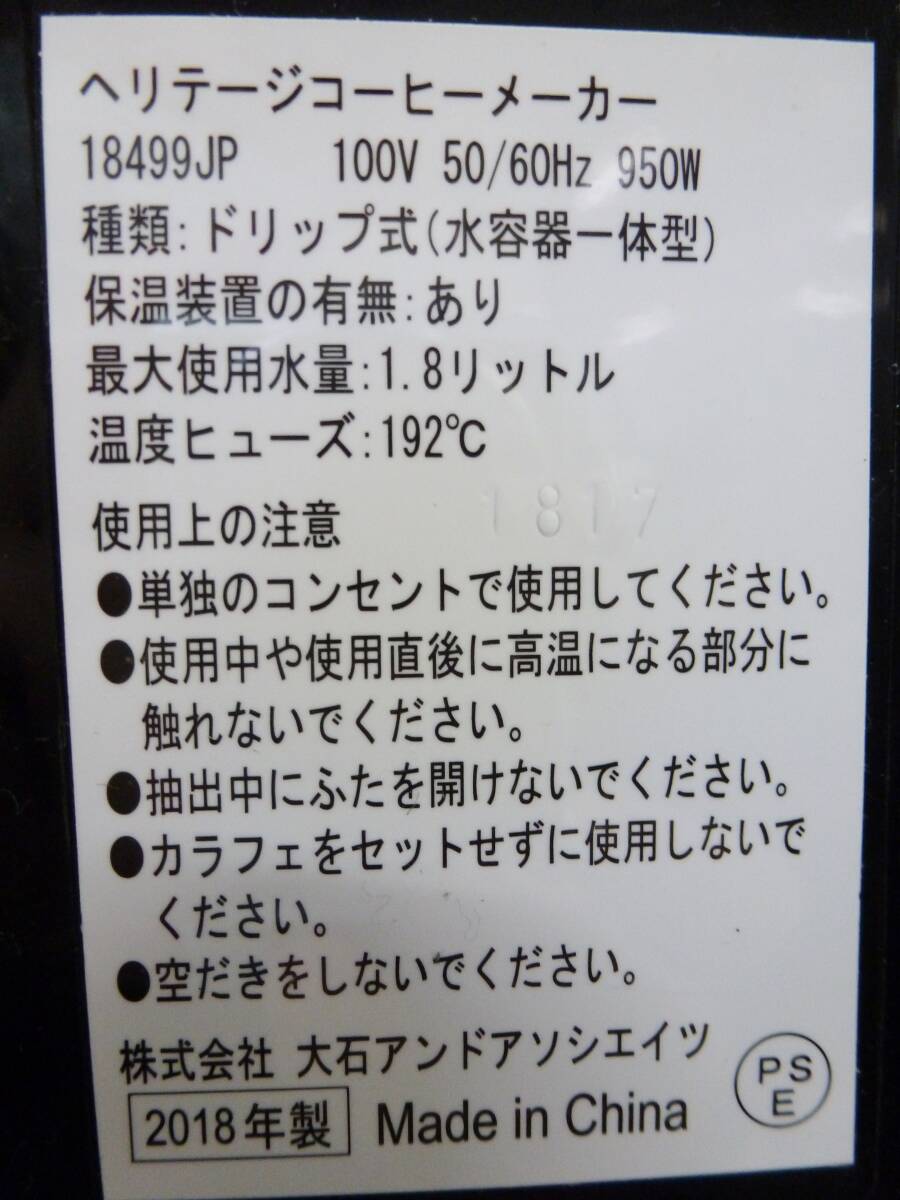 ヘリテージコーヒーメーカー
18499JP 100V 50/60Hz 950W
種類:ドリップ式(水容器一体型)
保温装置の有無:あり
最大使用水量:1.8リットル
温度ヒューズ:192℃
1817
使用上の注意
●単独のコンセントで使用してください。
●使用中や使用直後に高温になる部分に
触れないでください。
●抽出中にふたを開けないでください。
●カラフェをセットせずに使用しないで
ください。
●空だきをしないでください。
株式会社 大石アンドアソシエイツ
2018年製 Made in China
PSE